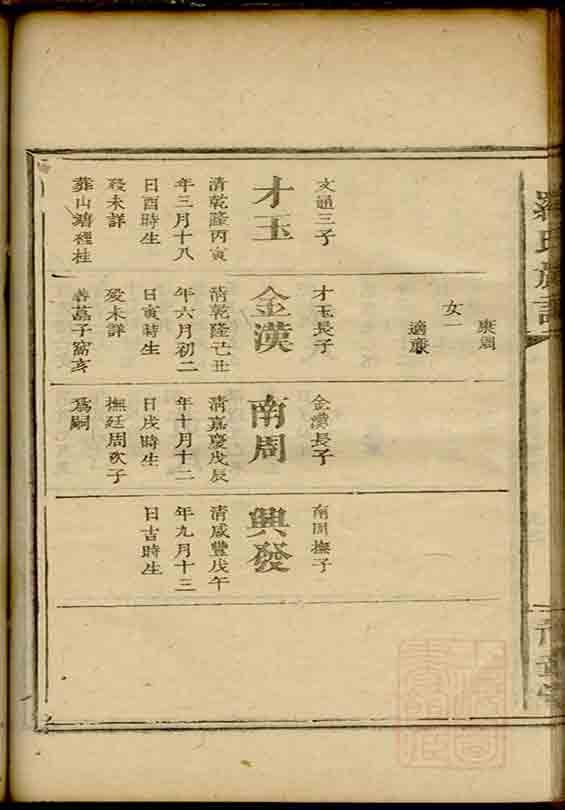 羅氏族譜
文通三子
才玉
清乾隆丙寅
年三月十八
日酉時生
歿未詳
葬山塘裡桂
東周
女一
適康
才玉長子
金漢
清乾隆己丑
年六月初二
日寅時生
歿未詳
葛子窩亥
金漢長子
南周
清嘉慶戊辰
年十月十二
日戌時生
撫廷周次子
爲嗣
南周撫子
興發
清咸豐戊午
年九月十三
日吉時生